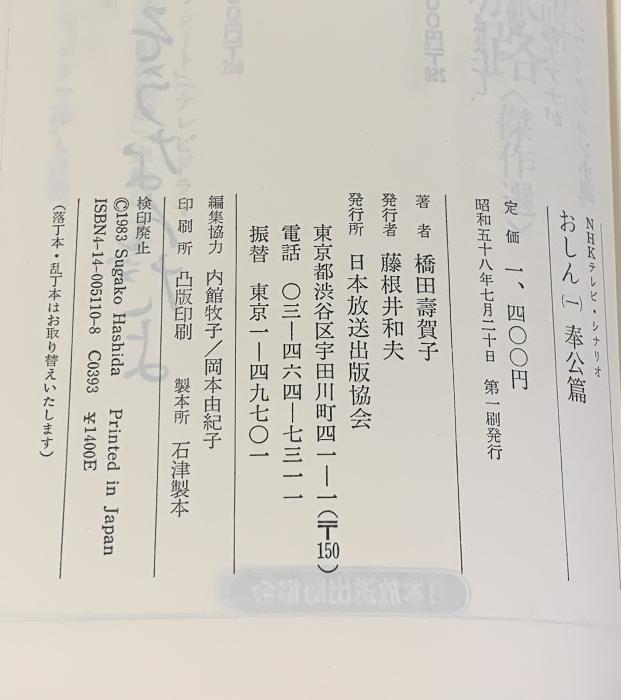 NHKテレビ・シナリオ
おしん（一）奉公篇
定価 一、四〇〇円
昭和五十八年七月二十日 第一刷発行
著者 橋田壽賀子
発行者 藤根井和夫
発行所 日本放送出版協会
東京都渋谷区宇田川町四一―一（〒150）
電話 〇三―四六四―七三一一
振替 東京一―四九七〇一
編集協力 内館牧子／岡本由紀子
印刷所 凸版印刷 製本所 石津製本
検印廃止
©1983 Sugako Hashida Printed in Japan
ISBN4-14-005110-8 C0393 ¥1400E
（落丁本・乱丁本はお取り替えいたします）